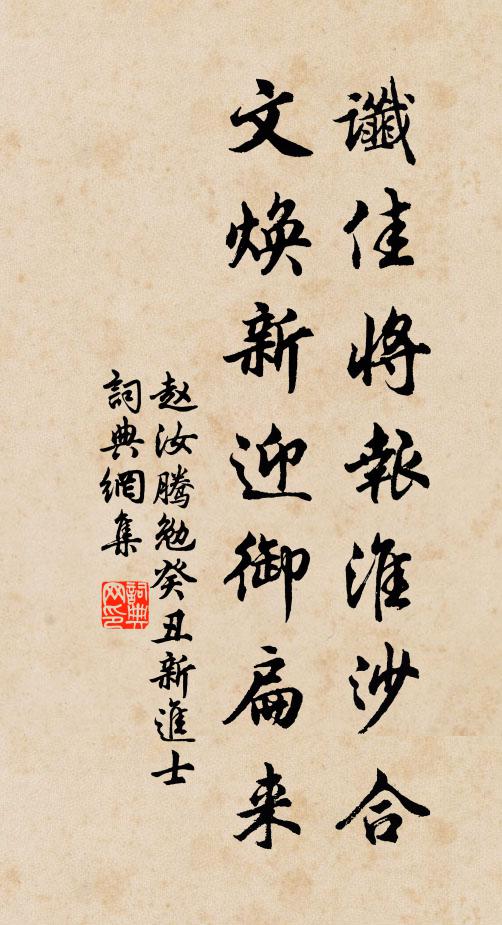 谶佳將報淮沙合
文焕新迎御扁来
赵汝騰勉癸丑新進士
詞典網集
詞典网印